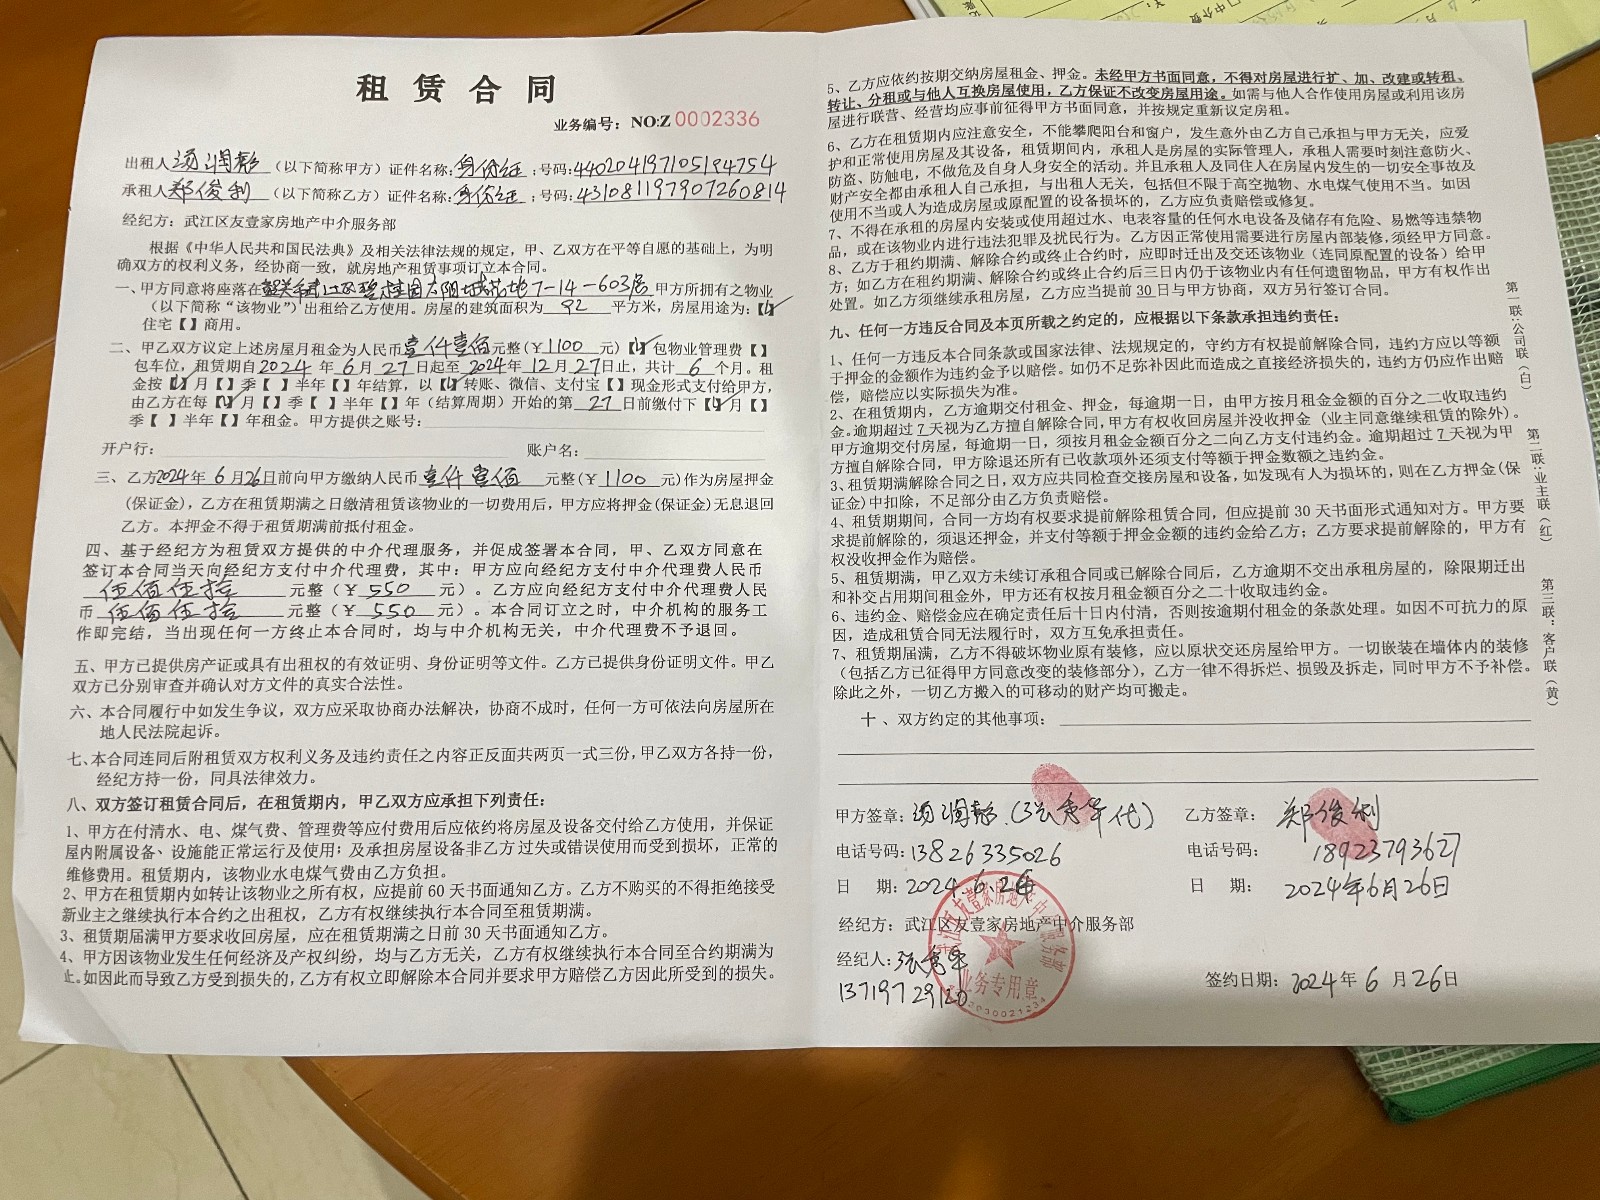 租 赁 合 同
业务编号：NO:Z 0002336
出租人汤润彰（以下简称甲方）证件名称：身份证；号码：440204197105184754
承租人郑俊利（以下简称乙方）证件名称：身份证；号码：431081197907260814
经纪方：武江区友壹家房地产中介服务部
根据《中华人民共和国民法典》及相关法律法规的规定，甲、乙双方在平等自愿的基础上，为明
确双方的权利义务，经协商一致，就房地产租赁事项订立本合同。
一、甲方同意将座落在韶关市武江区碧桂园太阳城花地7-14-603房 甲方所拥有之物业
（以下简称“该物业”）出租给乙方使用。房屋的建筑面积为 92 平方米，房屋用途为：【✓】
住宅【 】商用。
二、甲乙双方议定上述房屋月租金为人民币壹仟壹佰元整(￥1100 元)【✓】包物业管理费【 】
包车位，租赁期自2024 年 6 月 27 日起至 2024年 12 月 27日止，共计 6 个月。租
金按【✓】月【 】季【 】半年【 】年结算，以【✓】转账、微信、支付宝【 】现金形式支付给甲方，
由乙方在每【✓】月【 】季【 】半年【 】年（结算周期）开始的第 27 日前缴付下【✓】月【 】
季【 】半年【 】年租金。甲方提供之账号：
开户行： 账户名：
三、乙方2024年 6 月26日前向甲方缴纳人民币 壹仟壹佰 元整(￥ 1100 元)作为房屋押金
(保证金)，乙方在租赁期满之日缴清租赁该物业的一切费用后，甲方应将押金(保证金)无息退回
乙方。本押金不得于租赁期满前抵付租金。
四、基于经纪方为租赁双方提供的中介代理服务，并促成签署本合同，甲、乙双方同意在
签订本合同当天向经纪方支付中介代理费，其中：甲方应向经纪方支付中介代理费人民币
伍佰伍拾 元整（￥ 550 元）。乙方应向经纪方支付中介代理费人民
币 伍佰伍拾 元整（￥ 550 元）。本合同订立之时，中介机构的服务工
作即完结，当出现任何一方终止本合同时，均与中介机构无关，中介代理费不予退回。
五、甲方已提供房产证或具有出租权的有效证明、身份证明等文件。乙方已提供身份证明文件。甲乙
双方已分别审查并确认对方文件的真实合法性。
六、本合同履行中如发生争议，双方应采取协商办法解决，协商不成时，任何一方可依法向房屋所在
地人民法院起诉。
七、本合同连同后附租赁双方权利义务及违约责任之内容正反面共两页一式三份，甲乙双方各持一份，
经纪方持一份，同具法律效力。
八、双方签订租赁合同后，在租赁期内，甲乙双方应承担下列责任：
1、甲方在付清水、电、煤气费、管理费等应付费用后应依约将房屋及设备交付给乙方使用，并保证
屋内附属设备、设施能正常运行及使用；及承担房屋设备非乙方过失或错误使用而受到损坏，正常的
维修费用。租赁期内，该物业水电煤气费由乙方负担。
2、甲方在租赁期内如转让该物业之所有权，应提前 60 天书面通知乙方。乙方不购买的不得拒绝接受
新业主之继续执行本合约之出租权，乙方有权继续执行本合同至租赁期满。
3、租赁期届满甲方要求收回房屋，应在租赁期满之日前 30 天书面通知乙方。
4、甲方因该物业发生任何经济及产权纠纷，均与乙方无关，乙方有权继续执行本合同至合约期满为
止。如因此而导致乙方受到损失的，乙方有权立即解除本合同并要求甲方赔偿乙方因此所受到的损失。
5、乙方应依约按期交纳房屋租金、押金。未经甲方书面同意，不得对房屋进行扩、加、改建或转租、
转让、分租或与他人互换房屋使用，乙方保证不改变房屋用途。如需与他人合作使用房屋或利用该房
屋进行联营、经营均应事前征得甲方书面同意，并按规定重新议定房租。
6、乙方在租赁期内应注意安全，不能攀爬阳台和窗户，发生意外由乙方自己承担与甲方无关，应爱
护和正常使用房屋及其设备，租赁期间内，承租人是房屋的实际管理人，承租人需要时刻注意防火、
防盗、防触电，不做危及自身人身安全的活动。并且承租人及同住人在房屋内发生的一切安全事故及
财产安全都由承租人自己承担，与出租人无关，包括但不限于高空抛物、水电煤气使用不当。如因
使用不当或人为造成房屋或原配置的设备损坏的，乙方应负责赔偿或修复。
7、不得在承租的房屋内安装或使用超过水、电表容量的任何水电设备及储存有危险、易燃等违禁物
品，或在该物业内进行违法犯罪及扰民行为。乙方因正常使用需要进行房屋内部装修，须经甲方同意。
8、乙方于租约期满、解除合约或终止合约时，应即时迁出及交还该物业（连同原配置的设备）给甲
方；如乙方在租约期满、解除合约或终止合约后三日内仍于该物业内有任何遗留物品，甲方有权作出
处置。如乙方须继续承租房屋，乙方应当提前 30 日与甲方协商，双方另行签订合同。
九、任何一方违反合同及本页所载之约定的，应根据以下条款承担违约责任：
1、任何一方违反本合同条款或国家法律、法规规定的，守约方有权提前解除合同，违约方应以等额
于押金的金额作为违约金予以赔偿。如仍不足弥补因此而造成之直接经济损失的，违约方仍应作出赔
偿，赔偿应以实际损失为准。
2、在租赁期内，乙方逾期交付租金、押金，每逾期一日，由甲方按月租金金额的百分之二收取违约
金。逾期超过 7 天视为乙方擅自解除合同，甲方有权收回房屋并没收押金（业主同意继续租赁的除外）。
甲方逾期交付房屋，每逾期一日，须按月租金金额百分之二向乙方支付违约金。逾期超过 7 天视为甲
方擅自解除合同，甲方除退还所有已收款项外还须支付等额于押金数额之违约金。
3、租赁期满解除合同之日，双方应共同检查交接房屋和设备，如发现有人为损坏的，则在乙方押金(保
证金)中扣除，不足部分由乙方负责赔偿。
4、租赁期期间，合同一方均有权要求提前解除租赁合同，但应提前 30 天书面形式通知对方。甲方要
求提前解除的，须退还押金，并支付等额于押金金额的违约金给乙方；乙方要求提前解除的，甲方有
权没收押金作为赔偿。
5、租赁期满，甲乙双方未续订承租合同或已解除合同后，乙方逾期不交出承租房屋的，除限期迁出
和补交占用期间租金外，甲方还有权按月租金额百分之二十收取违约金。
6、违约金、赔偿金应在确定责任后十日内付清，否则按逾期付租金的条款处理。如因不可抗力的原
因，造成租赁合同无法履行时，双方互免承担责任。
7、租赁期届满，乙方不得破坏物业原有装修，应以原状交还房屋给甲方。一切嵌装在墙体内的装修
（包括乙方已征得甲方同意改变的装修部分），乙方一律不得拆烂、损毁及拆走，同时甲方不予补偿。
除此之外，一切乙方搬入的可移动的财产均可搬走。
十 、双方约定的其他事项：
甲方签章：汤润彰（张秀华代） 乙方签章：郑俊利
电话号码：13826335026 电话号码：18923793627
日 期：2024.6.26 日 期：2024年6月26日
经纪方：武江区友壹家房地产中介服务部
经纪人：张秀华
13719729120
签约日期：2024 年 6 月 26日
武江区友壹家房地产中介服务部
业务专用章
第一联：公司联（白）
第二联：业主联（红）
第三联：客户联（黄）